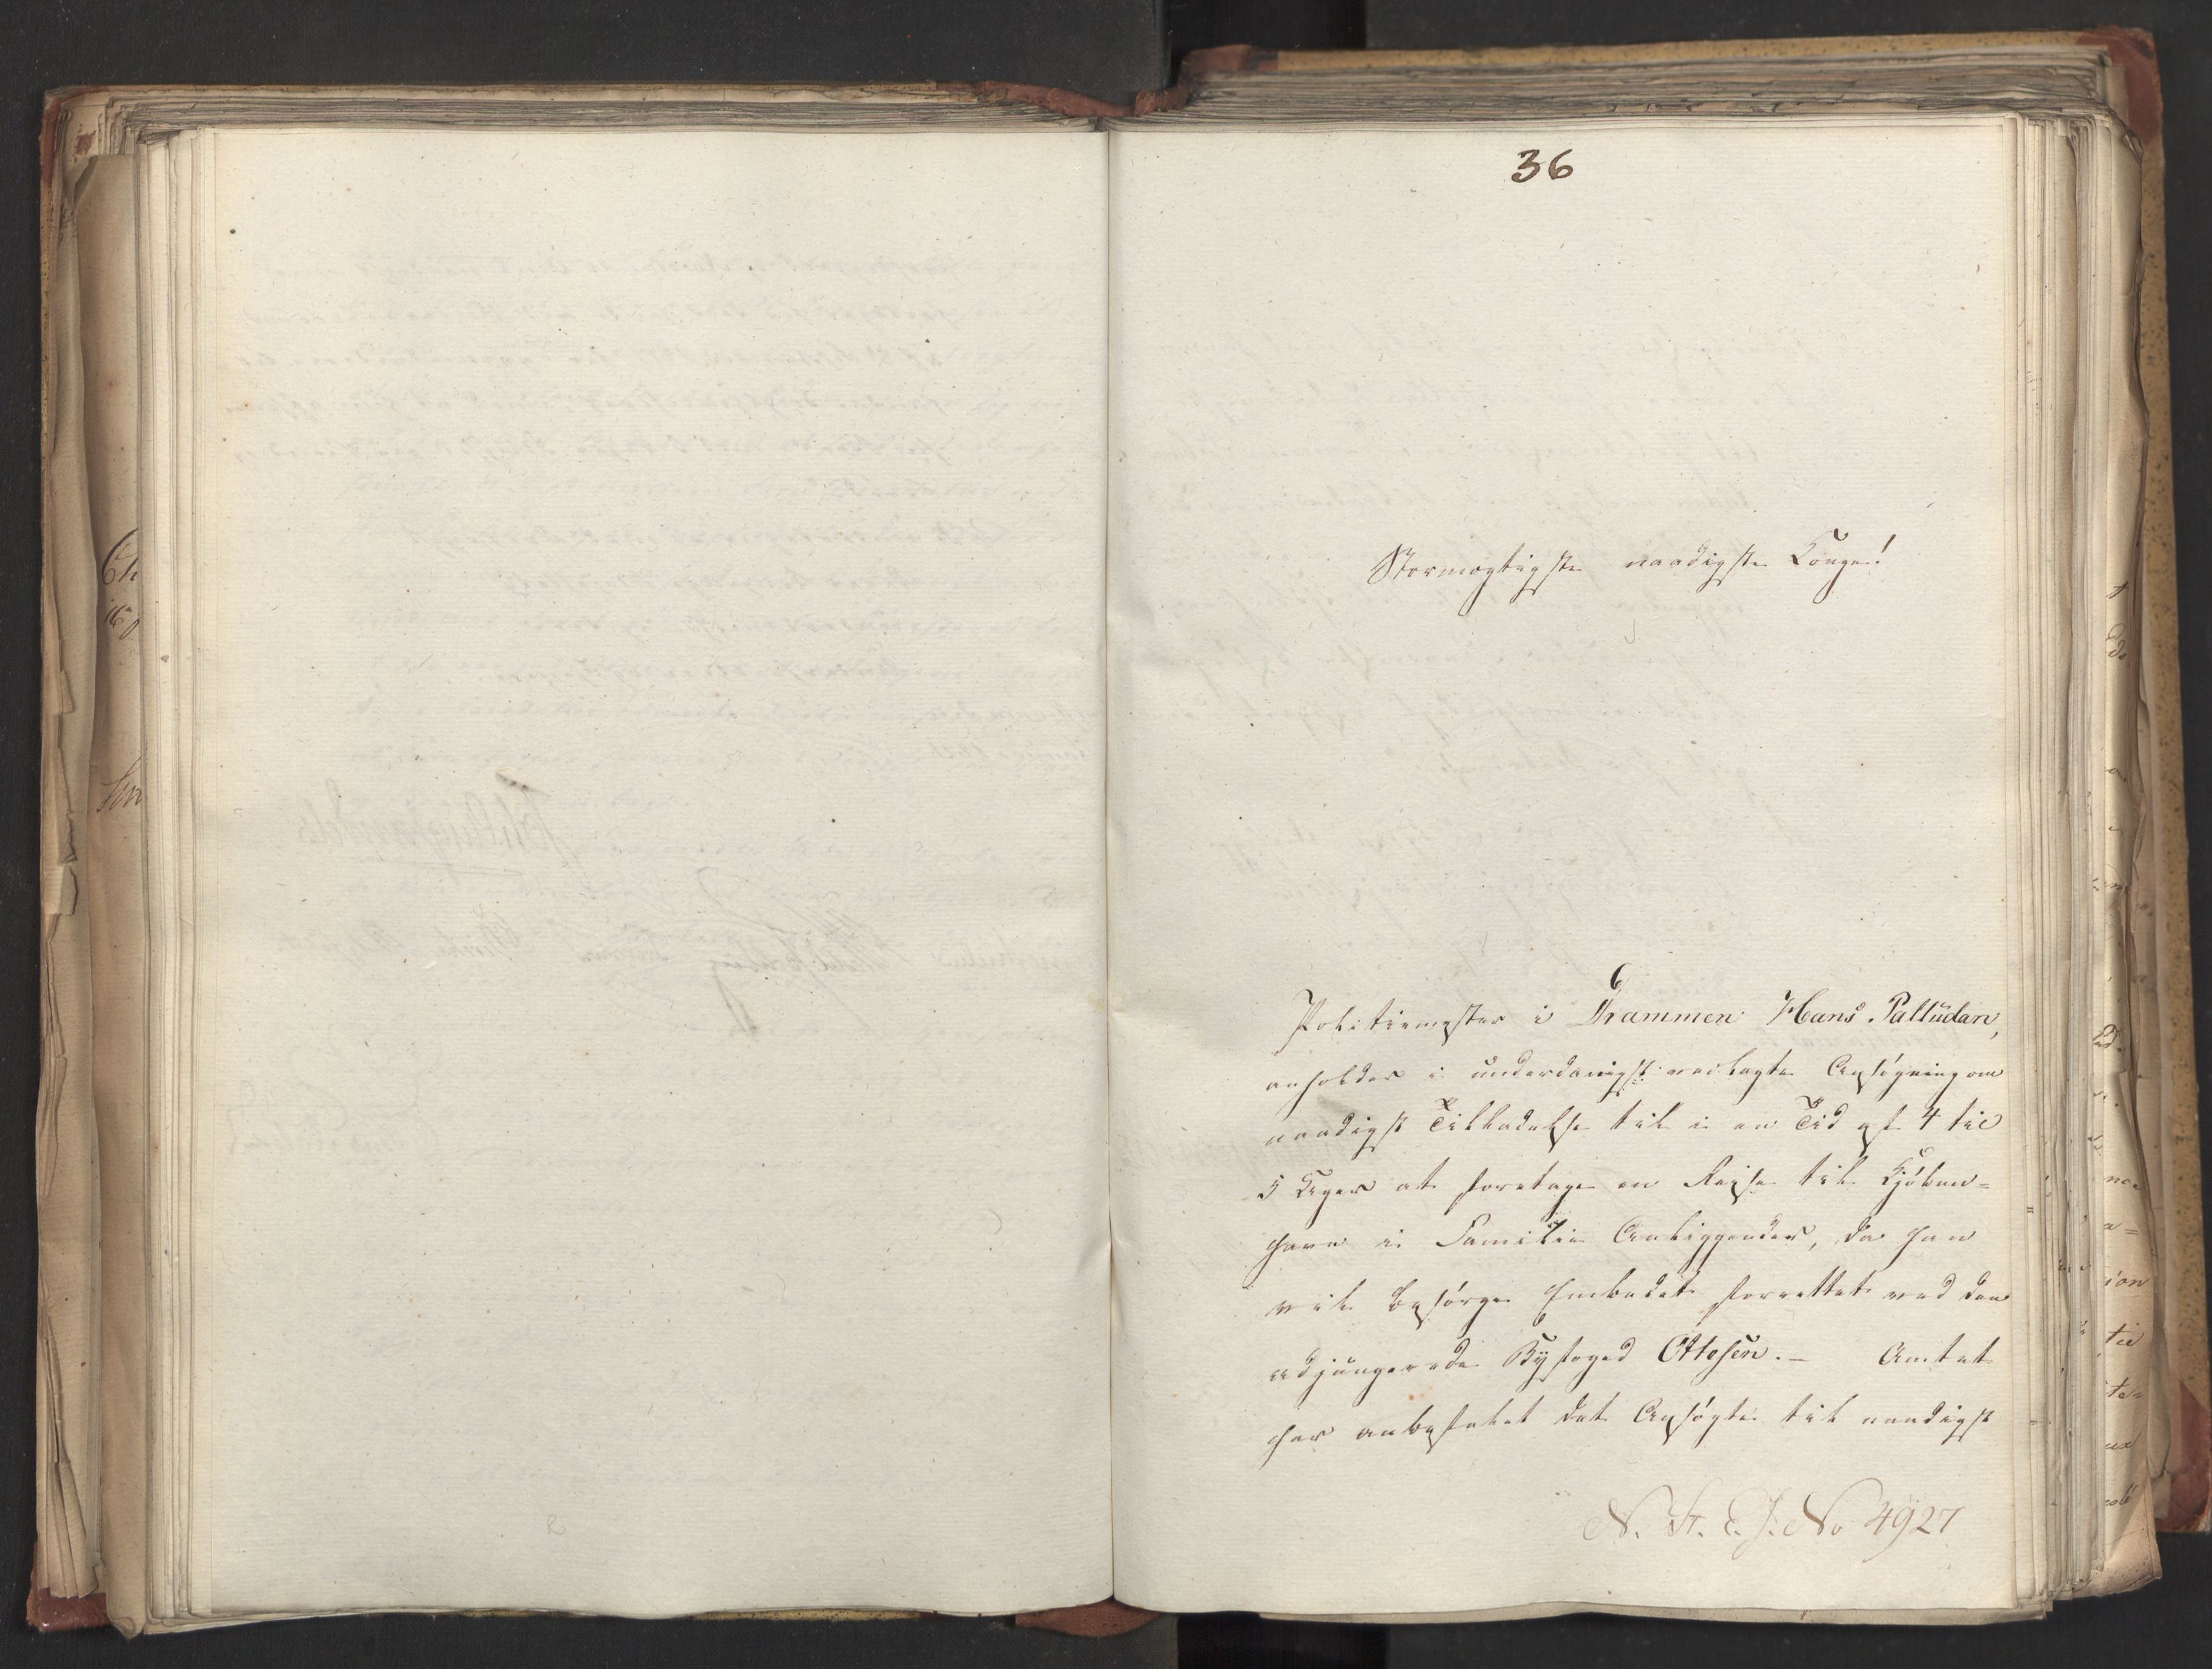 36
Stormægtigste naadigste Konge!
Politiemester i Drammen Hans Palludan,
anholder i underdanigst veilagte Ansøgning om
naadigst Tilladelse til i en Tid af 4 til
5 Uger at foretage en Reise til Kjøben-
havn i Familie Anliggender, da han
vil besørge Embedet forrettet ved den
adjungerede Byfoged Ottesen. – Amtet
har anbefalet det Ansøgte til naadigst
N. St. E. J. No 4927